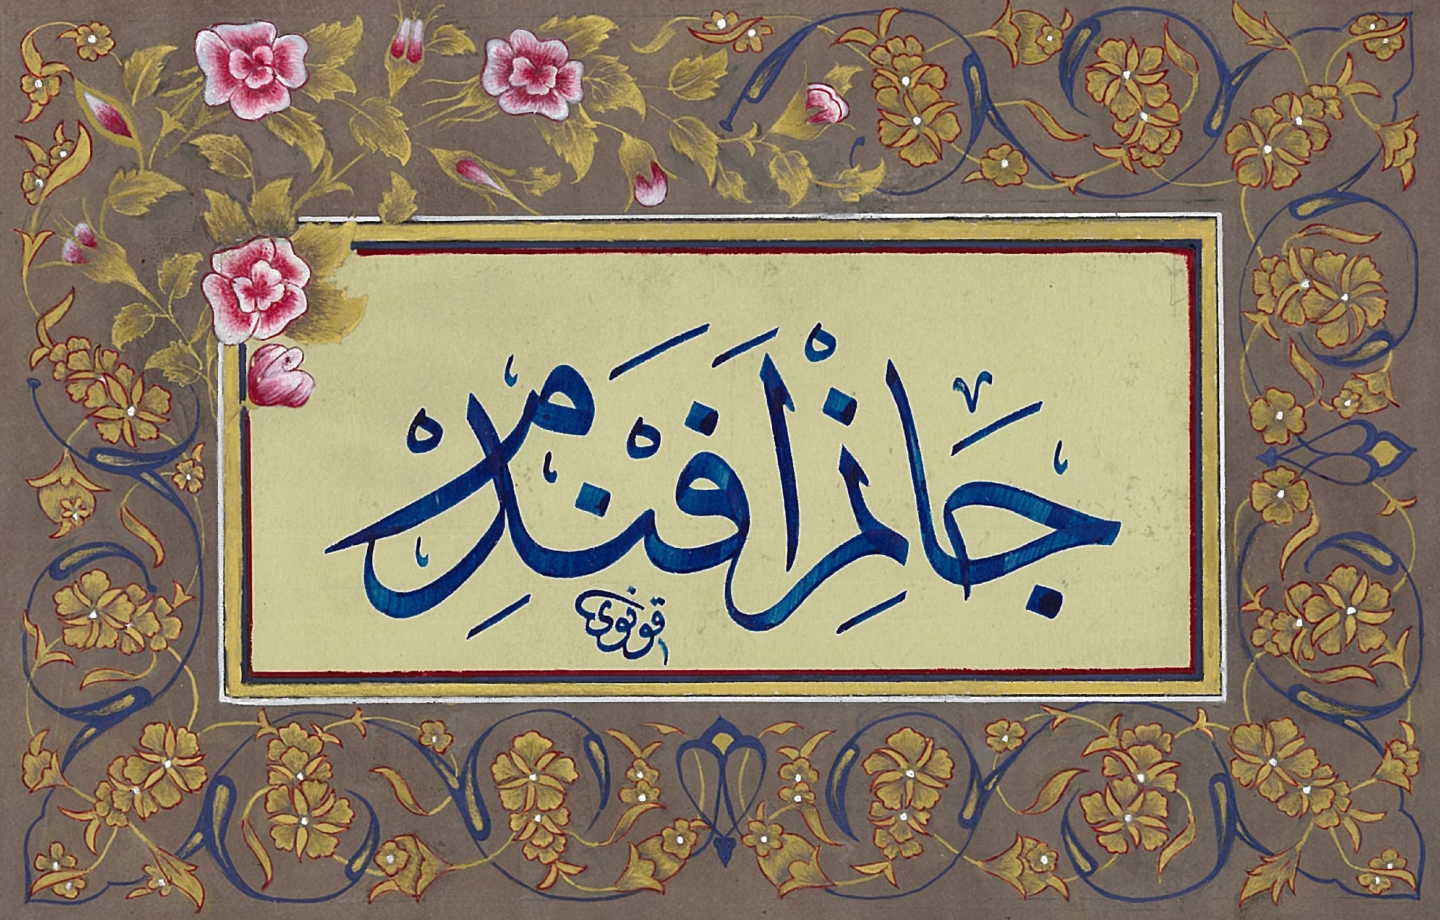 جانم افندم
قونوی